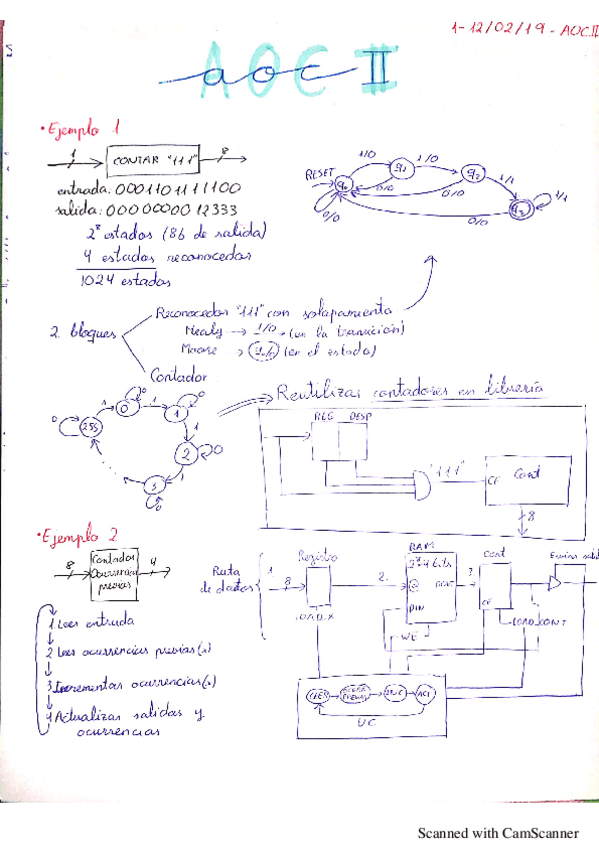 1-12/02/19 - AOC II
AOC II
• Ejemplo 1
1
CONTAR "111"
8
entrada: 0001101111100
salida: 0000000012333
2⁸ estados (8b de salida)
4 estados reconocedor
1024 estados
RESET
q0
1/0
q1
1/0
q2
1/1
q3
1/1
0/0
0/0
0/0
0/0
2 bloques
Reconocedor "111" con solapamiento
Mealy → 1/0 → (en la transición)
Moore → (en el estado)
Contador
Reutilizar contadores en librería
0
1
2
3
255
REG DESP
"111"
CE
Cont
8
• Ejemplo 2
8
Contador
Ocurrencias
previas
4
1 Leer entrada
2 Leer ocurrencias previas(x)
3 Incrementar ocurrencias(x)
4 Actualizar salidas y
ocurrencias
Ruta
de datos
1.
8
Registro
LOAD_X
2.
RAM
DOUT
DIN
WE
3
Cont
CE
LOAD_CONT
LEER
INC
ACT
UC
Scanned with CamScanner